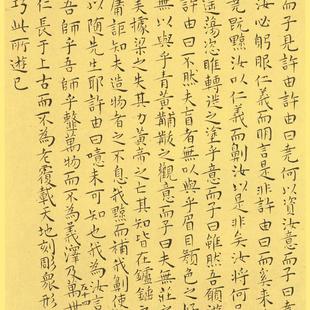 而子見許由許由曰堯何以資汝意而子曰
汝必躬服仁義而明言是非許由曰而奚來
堯既黥汝以仁義而劓汝以是非矣汝將何
遥蕩恣睢轉徙之塗乎意而子曰雖然吾願
許由曰不然夫盲者無以與乎眉目顏色之
無以與乎青黃黼黻之觀意而子曰夫無莊之
美據梁之失其力黃帝之亡其知皆在鑪錘
庸詎知夫造物者之不息我黥而補我劓使
以隨先生耶許由曰噫未可知也我為汝言
吾師乎吾師乎整萬物而不為義澤及萬世
仁長于上古而不為老覆載天地刻彫眾形
巧此所遊已